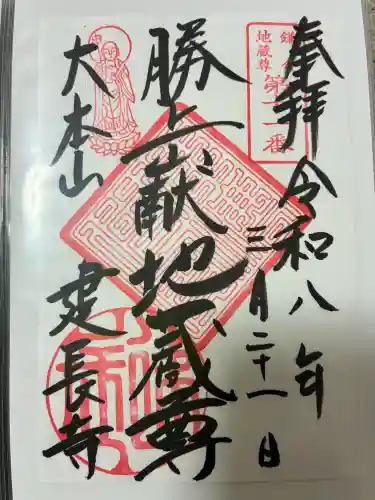 奉拝
令和八年
三月二十一日
鎌倉
地蔵尊
第十一番
勝上献地蔵尊
大本山
建長寺